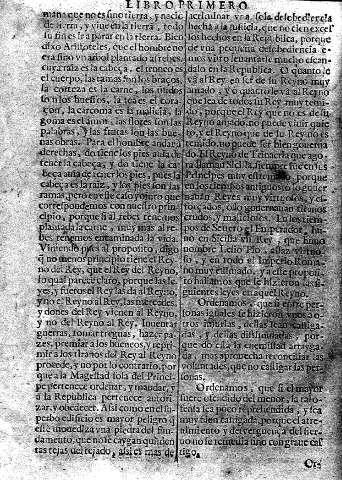 LIBRO PRIMERO
mana que no es sino tierra, y nacie
de tierra, y viue en la tierra, y todo
su fin es ir a parar en la tierra. Bien
dixo Aristoteles, que el hombre no
era sino vn arbol plantado al reues
cuya raiz es la cabeça, el tronco es
el cuerpo, las ramas son los braços,
la corteza es la carne, los nudos
son los huessos, la tea es el coraçon,
çon, la carcoma es la malicia, la
goma es el amor, las flores son las
palabras, y las frutas son las bue
nas obras. Para el hombre andar a
derechas, do tiene los pies auia de
tener la cabeça, y do tiene la ca
beça auia de tener los pies, pues la
cabeça es la raiz, y los pies son las
ramas, pero en este caso yo juro que
correspondemos con nuestro prin
cipio, porque si al reues tenemos
plantada la carne, muy mas al re
bes tenemos encaminada la vida.
Viniendo pues al proposito, digo
q̃ no menos principio tiene el Rey
no del Rey, que el Rey del Reyno,
lo qual parece claro, porque las le
yes, y fueros el Rey las da al Reyno,
y no el Reyno al Rey, las mercedes
y dones del Rey vienen al Reyno,
y no del Reyno al Rey. Inuentar
guerras, tomar treguas, hazer pa
zes, premiar a los buenos, y repri
mir a los tiranos del Rey al Reyno
procede, y no por lo contrario, por
que a la Magestad sola del Princi
pe pertenece ordenar, y mandar, y
a la Republica pertenece autori
zar, y obedecer. Assi como en el su
perbo edificio es mayor peligro
vna piedra del fun
damento, que no se caygan quinien
tas tejas del tejado, assi es mas de
acriminar vna sola desobediencia
hecha a la justicia, que no cien exces
sos hechos en la Republica, porque
de vna pequeña desobediencia e
mos visto leuantarse mucho escan
dalo en la Republica. O quanto le
va al Rey en ser de su Reyno muy
amado, y o quanto le va al Reyno
que sea de todos su Rey muy temi
do, porque el Rey que no es de su
Reyno amado, no puede viuir quie
to, y el Reyno que de su Rey no es
temido, no puede ser bien gouerna
do. El Reyno de Trinacria que ago
ra llaman Sicilia, siempre fue en los
Principes muy estremado, porque
en los tiempos antiguos lo gouer
nauan Reyes muy virtuosos, y es
forçados,
crudos, y maliciosos. En los tiem
pos de Seuero el Emperador, hu
uo en Sicilia vn Rey, que huuo
nombre Lelio Pio,
y en todo el Imperio Romano
muy estimado, y a este proposi
to hallamos que se hizieron las si
guientes leyes en aquel Reyno.
Ordenamos, que si entre per
sonas iguales se hizieren vnos a o
tros injurias, dellas sean castiga
das, y dellas dissimuladas, por
que do està la enemistad arraiga
da, mas aprouecha reconciliar las
voluntades, que no castigar las per
sonas.
Ordenamos, que si el mayor
fuere ofendido del menor, la tal o
fensa sea poco reprehendida, y sea
muy bien castigada, porque el atre
uimiento y desverguença del sier
uo no se remedia sino con graue cas
tigo.
Or-